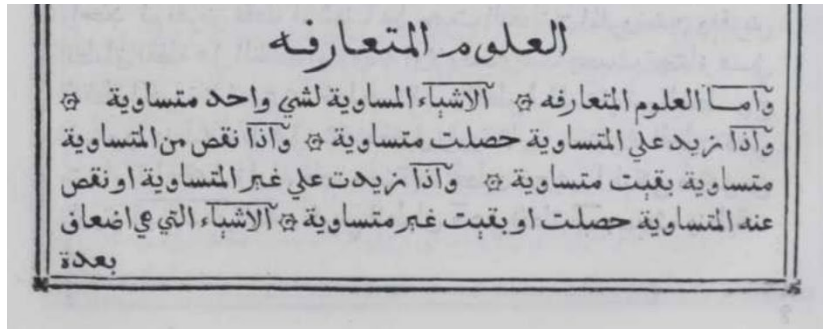 العلوم المتعارفه
وآما العلوم المتعارفه ۞ آلاشياء المساوية لشي واحد متساوية ۞
وآذا زيد علي المتساوية حصلت متساوية ۞ وآذا نقص من المتساوية
متساوية بقيت متساوية ۞ وآذا زيدت علي غير المتساوية او نقص
عنه المتساوية حصلت او بقيت غير متساوية ۞ آلاشياء التي هي اضعاف
بعدة